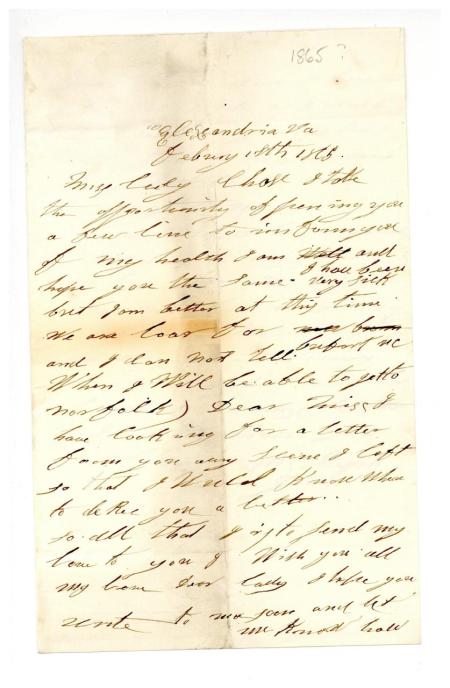 1865?
Alexxandria Va
Febury 18th 1865.
Miss Lucy Chase I take
the opportunity of pening you
a few line to inform you
of my health I am Well and
hope you the Same I have been very Sick
but I am better at this time
We are loar for
and I Can not tell
When I Will be able to get to
norfolk Dear Miss I
have looking for a letter
from you evry Scene I left
so that I Would Know Whare
to you a letter..
so all that I to send my
love to you I Wish you all
my love Dear Lady I hope you
write to me soon and let
me Know how